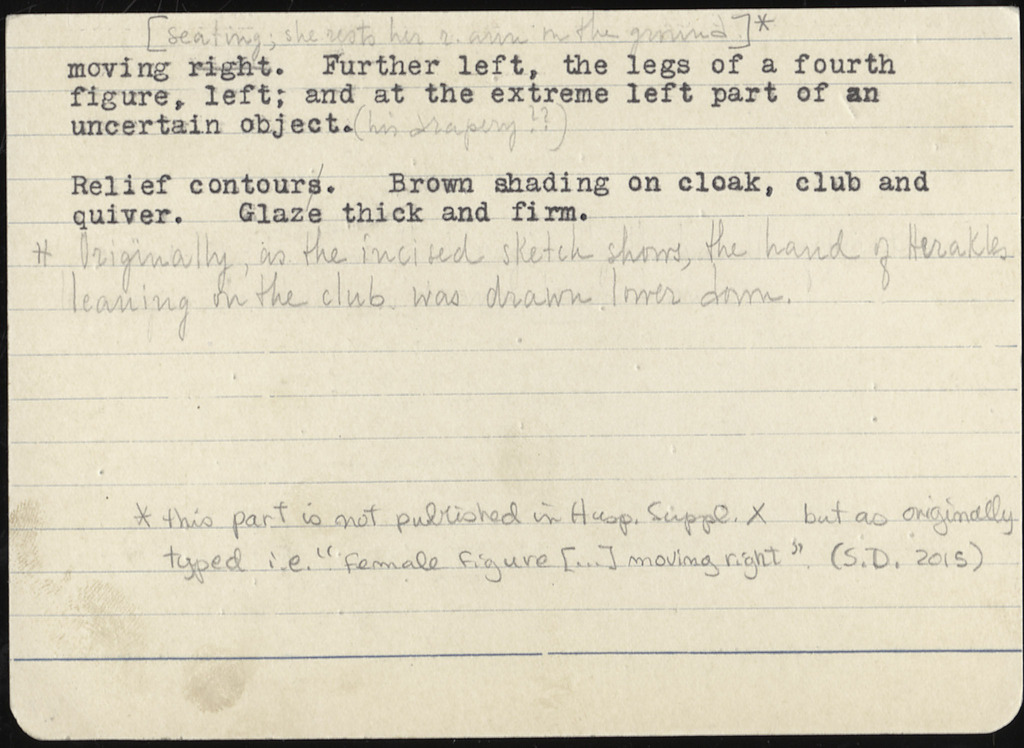 [seating; she rests her r. arm on the ground]*
moving right. Further left, the legs of a fourth
figure, left; and at the extreme left part of an
uncertain object. (his drapery ??)
Relief contours. Brown shading on cloak, club and
quiver. Glaze thick and firm.
# Originally, as the incised sketch shows, the hand of Herakles
leaning on the club was drawn lower down.
* this part is not published in Hesp. Suppl. X but as originally
typed i.e. "Female figure [...] moving right". (S.D. 2015)